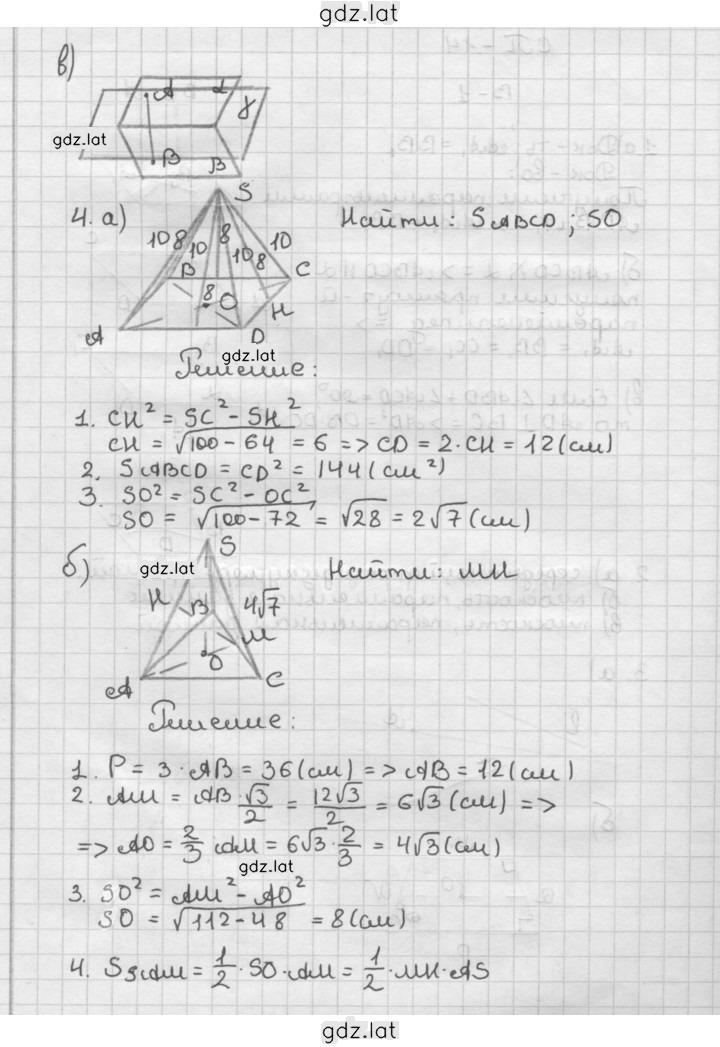 gdz.lat
в)
A α
γ
gdz.lat
B β
S
4. а)
Найти: SABCD; SO
10 8 10 8 10 8 10
B C
8 O H
A D
gdz.lat
Решение:
1. CH² = SC² - SH²
CH = √100 - 64 = 6 => CD = 2·CH = 12 (см)
2. SABCD = CD² = 144 (см²)
3. SO² = SC² - OC²
SO = √100 - 72 = √28 = 2√7 (см)
S
б)
gdz.lat
Найти: MH
H B 4√7
M
O
A C
Решение:
1. P = 3·AB = 36 (см) => AB = 12 (см)
2. AM = AB·√3/2 = 12√3/2 = 6√3 (см) =>
=> AO = 2/3 AM = 6√3·2/3 = 4√3 (см)
gdz.lat
3. SO² = AM² - AO²
SO = √112 - 48 = 8 (см)
4. SSAM = 1/2·SO·AM = 1/2·MH·AS
gdz.lat